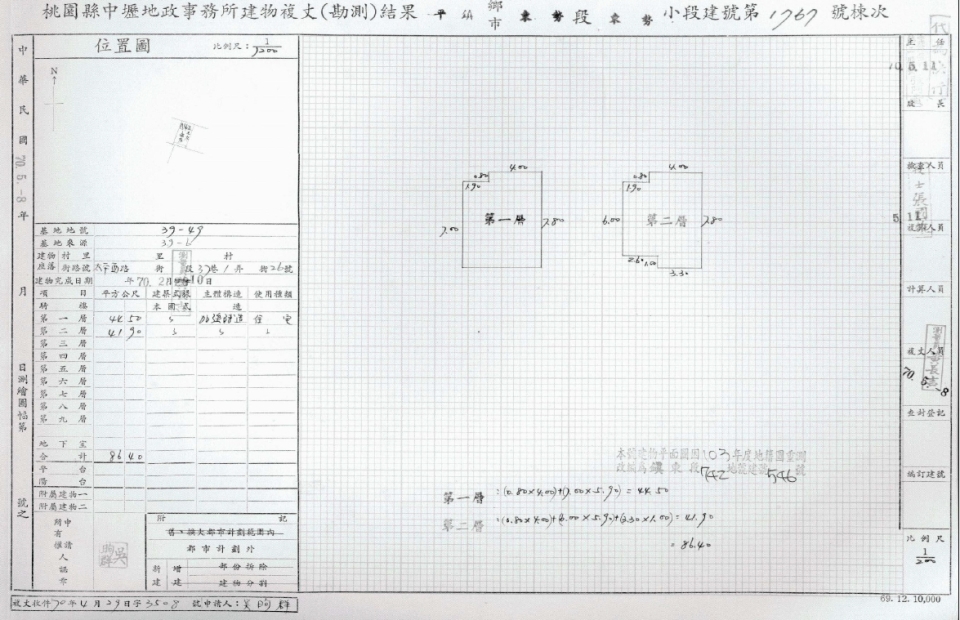 桃園縣中壢地政事務所建物複丈(勘測)結果 平鎮 鄉市 東勢 段 東勢 小段建號第1767號棟次
位置圖 比例尺：1/200
N
中華民國70.5.-8年 月 日測繪圖幅第 號之
基地地號 39-49
基地來源 39-6
建物座落 村里 里 村
街路號 太平西路 街 段 37巷1弄 街26號
建物完成日期 年70.2月 10日
項目 平方公尺 建築式樣 主體構造 使用種類
騎樓 本國式 造
第一層 44 50 加強磚造 住宅
第二層 41 90
第三層
第四層
第五層
第六層
第七層
第八層
第九層
地下室
合計 86 40
平台
陽台
附屬建物一
附屬建物二
附記
舊、擴大都市計劃範圍內
都市計劃外
新建 增建 部份拆除 建物分割
申請人 所有權人 蓋章
複丈收件70年4月29日字3508號申請人：吳
4.00
0.80
1.90
第一層
7.00
7.80
4.00
0.80
1.90
第二層
6.00
7.80
2.60
1.00
3.30
本號建物平面圖因103年度地籍圖重測
改編為鎮東段742地號建號546號
第一層：(0.80×4.00)+(7.00×5.90)=44.50
第二層：(0.80×4.00)+(6.00×5.90)+(3.30×1.00)=41.90
=86.40
主任
股長
檢查人員
校對人員
計算人員
複丈人員
70.5.-8
查封登記
編訂建號
比例尺
1/200
69.12.10,000